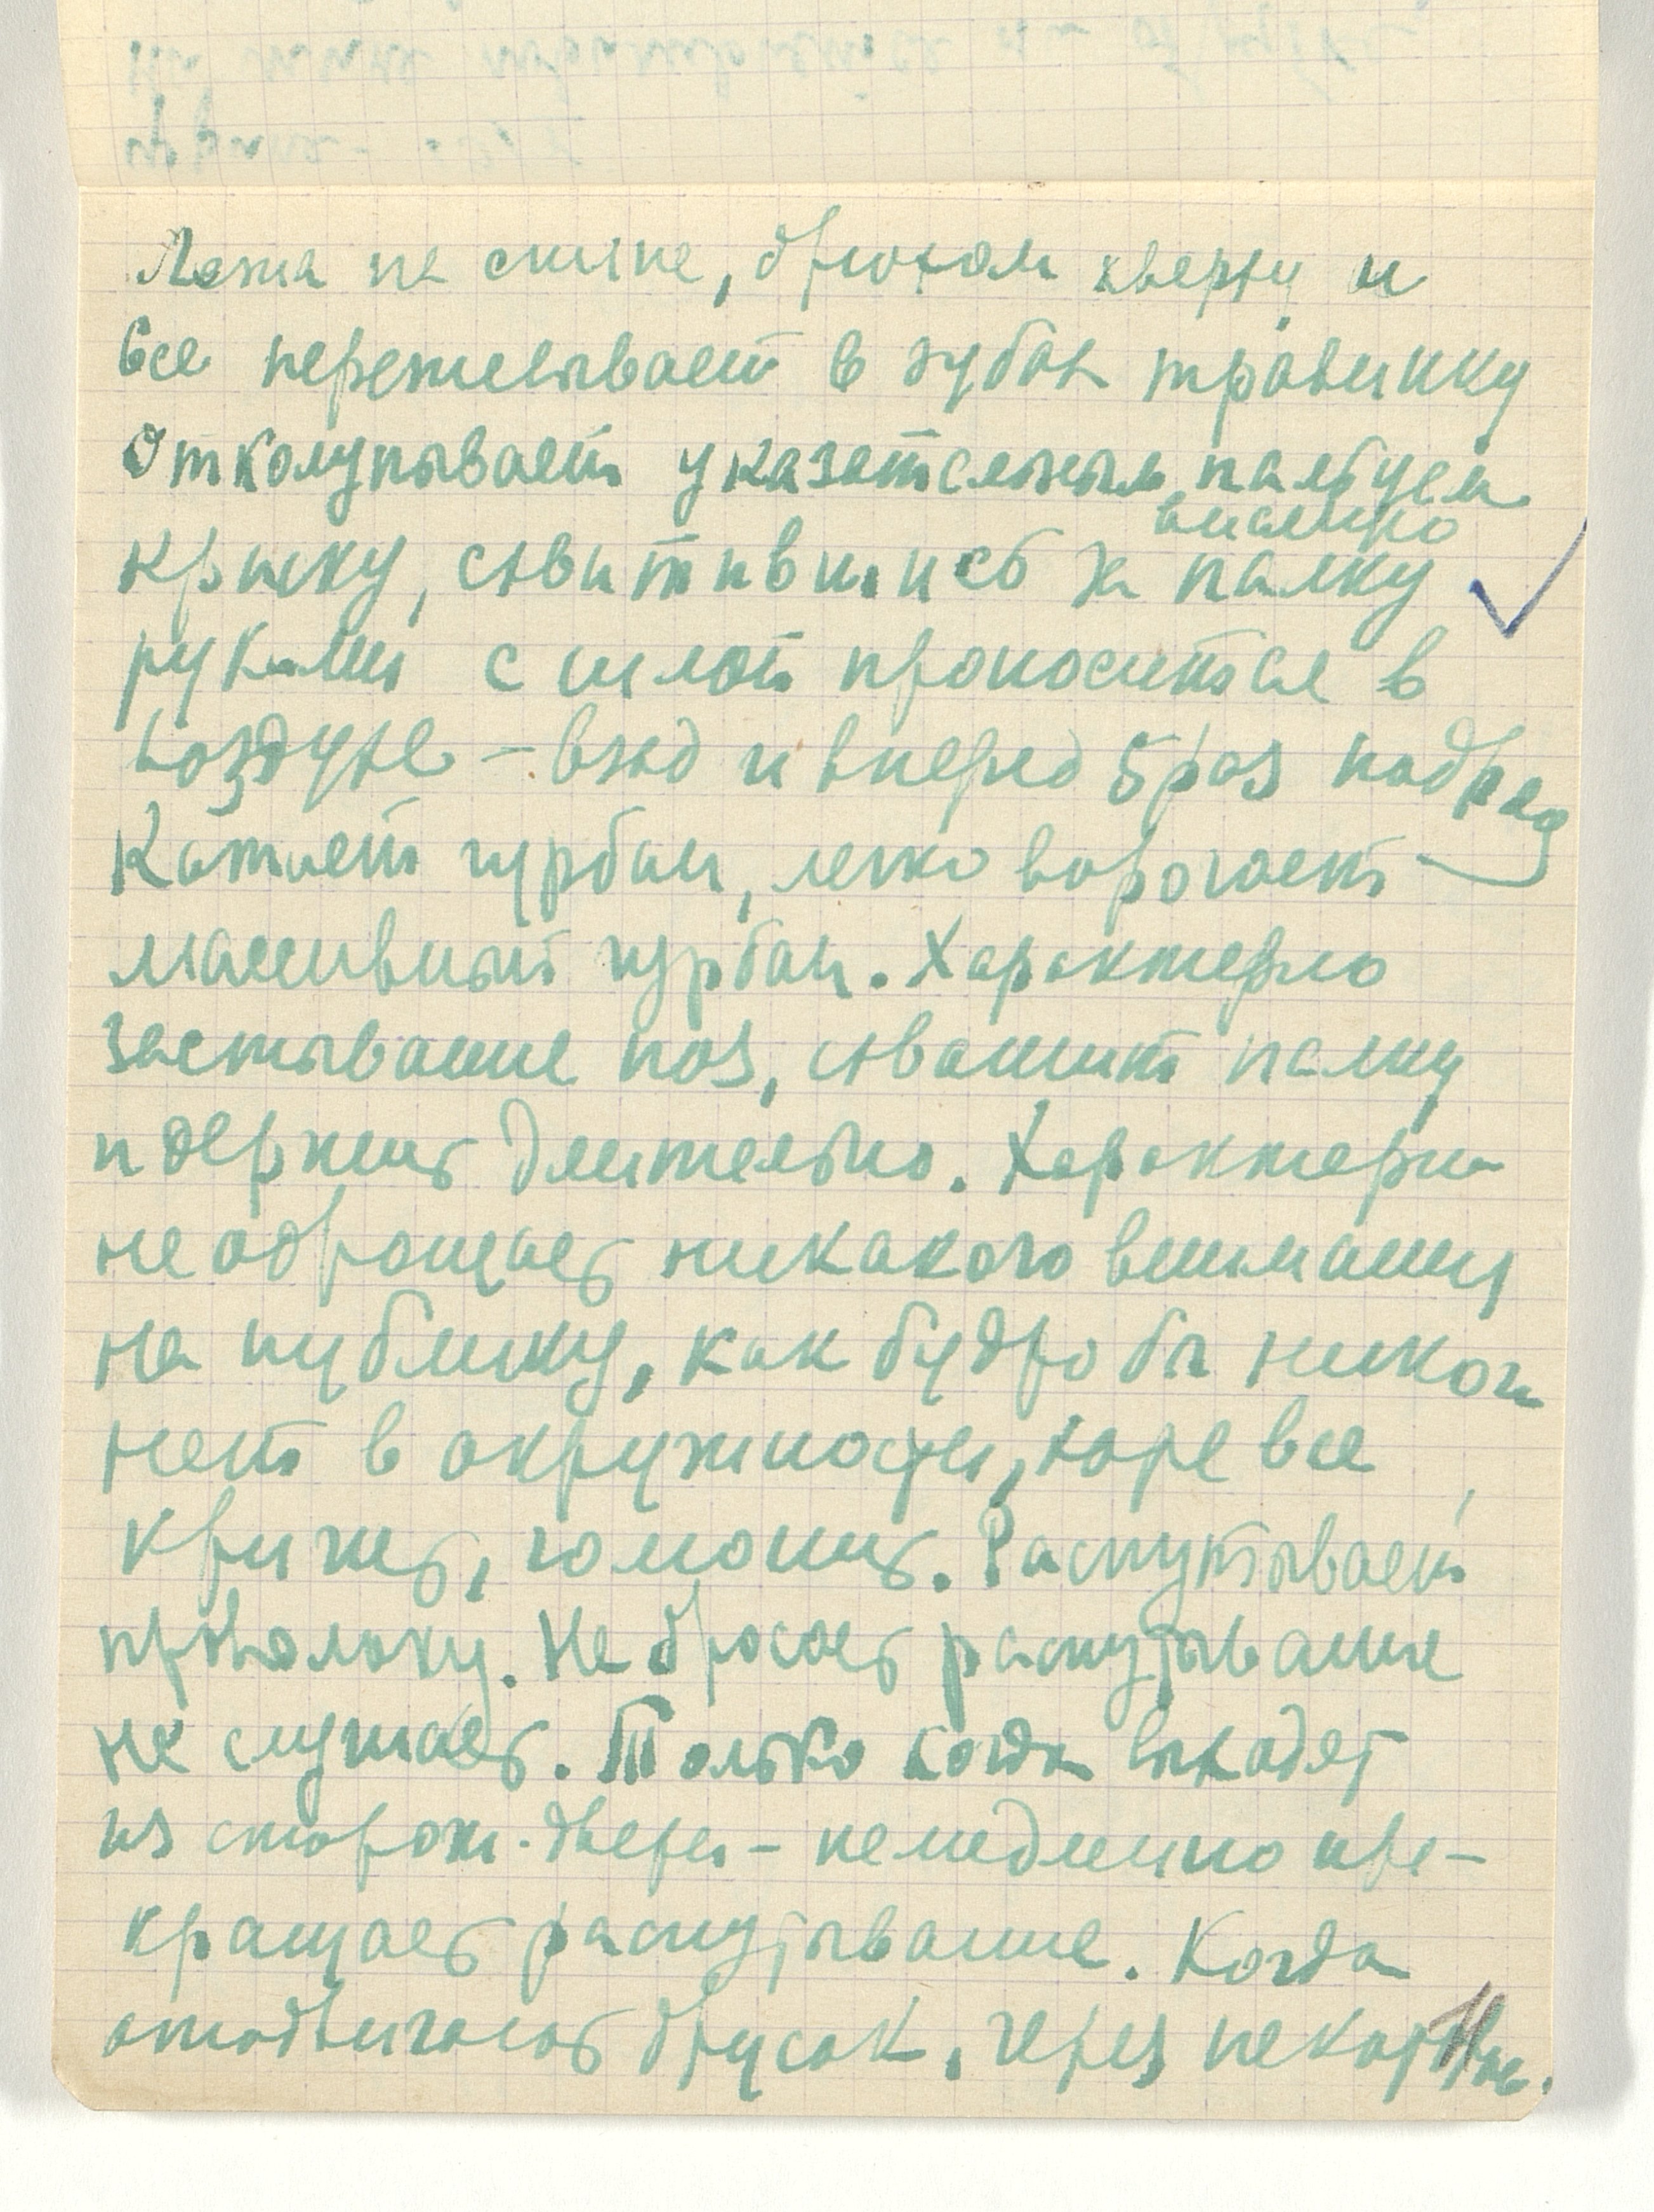 Лежа на спине, брюхом кверху и
все пережевывает в зубах травинку
Отколупывает указательным пальцем
висящую
крышку, схватившись за палку
руками с силой проносится в
воздухе – взад и вперед 5 раз подряд
Катает чурбан, легко ворочает
массивный чурбан. Характерно
застывание поз, схватит палку
и держит длительно. Характерно
не обращает никакого внимания
на публику, как будто бы никого
нет в окружности, хотя все
кричат, гомонят. Распутывает
проволоку. Не бросает распутывание
не слушает. Только когда выходят
из сторож. двери – немедленно пре-
кращает распутывание. Когда
отодвигают брусок, через некот.